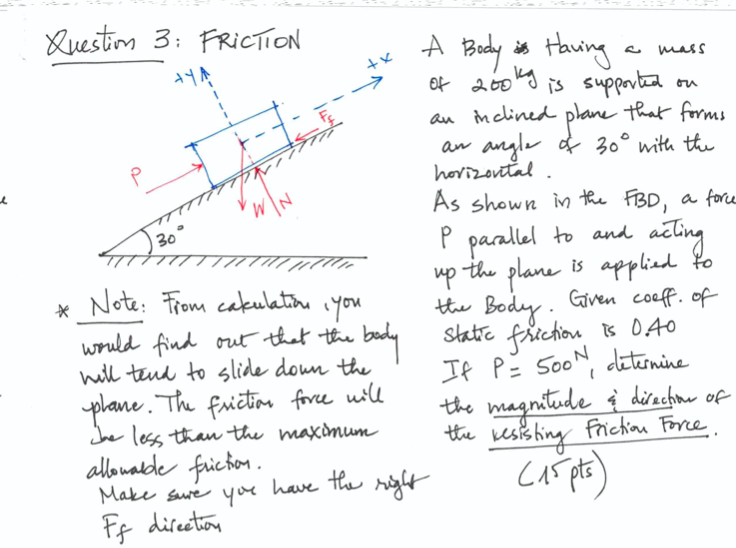 Question 3: FRICTION
+Y
+X
Ff
P
W
N
30°
* Note: From calculation, you
would find out that the body
will tend to slide down the
plane. The friction force will
be less than the maximum
allowable friction.
Make sure you have the right
Ff direction
A Body Having a mass
of 200 kg is supported on
an inclined plane that forms
an angle of 30° with the
horizontal.
As shown in the FBD, a force
P parallel to and acting
up the plane is applied to
the Body. Given coeff. of
static friction is 0.40
If P = 500 N, determine
the magnitude & direction of
the resisting Friction Force.
(15 pts)